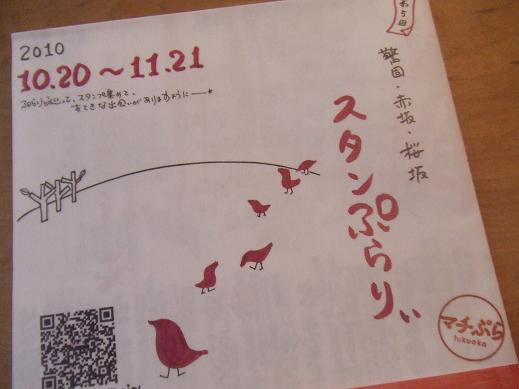 第5回
警固・赤坂・桜坂
スタンぷらりぃ
2010
10.20〜11.21
ぶらり巡って、スタンプ集めて、
すてきな出会いがありますように
マチぷら
fukuoka